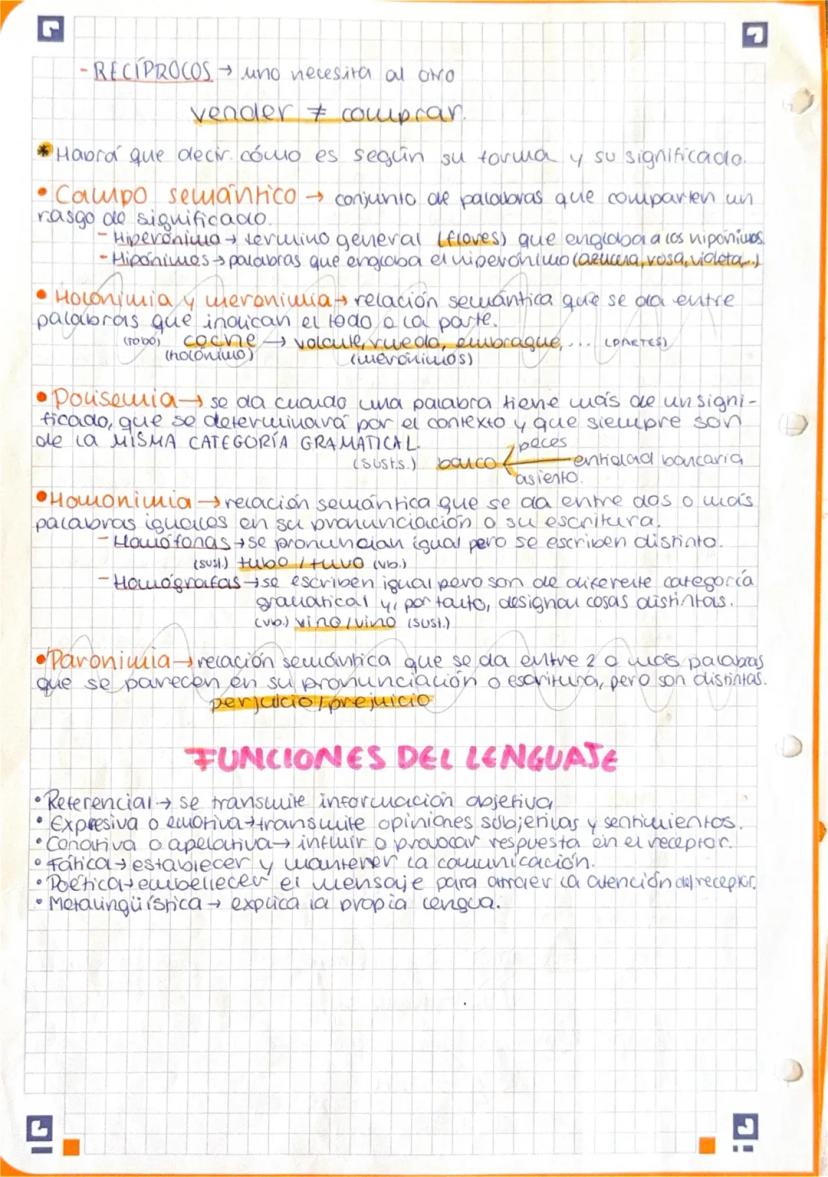 - RECÍPROCOS → uno necesita al otro
vender ≠ comprar.
* Habrá que decir cómo es según su forma y su significado.
• Campo semántico → conjunto de palabras que comparten un
rasgo de significado.
- Hiperónimo → término general (flores) que engloba a los hipónimos.
- Hipónimos → palabras que engloba el hiperónimo (azucena, rosa, violeta...)
• Holonimia y meronimia → relación semántica que se da entre
palabras que indican el todo o la parte.
(TODO) coche → volante, rueda, embrague, ... (PARTES)
(holónimo) (merónimos)
• Polisemia → se da cuando una palabra tiene más de un signi-
ficado, que se determinará por el contexto y que siempre son
de la MISMA CATEGORÍA GRAMATICAL.
peces
(susts.) banco entidad bancaria
asiento.
• Homonimia → relación semántica que se da entre dos o más
palabras iguales en su pronunciación o su escritura.
- Homófonas → se pronuncian igual pero se escriben distinto.
(sust.) tubo / tuvo (vb.)
- Homógrafas → se escriben igual pero son de diferente categoría
gramatical y, por tanto, designan cosas distintas.
(vb.) vino / vino (sust.)
• Paronimia → relación semántica que se da entre 2 o más palabras
que se parecen en su pronunciación o escritura, pero son distintas.
perjuicio / prejuicio
FUNCIONES DEL LENGUAJE
• Referencial → se transmite información objetiva
• Expresiva o emotiva → transmite opiniones subjetivas y sentimientos.
• Conativa o apelativa → influir o provocar respuesta en el receptor.
• Fática → establecer y mantener la comunicación.
• Poética → embellecer el mensaje para atraer la atención del receptor.
• Metalingüística → explica la propia lengua.